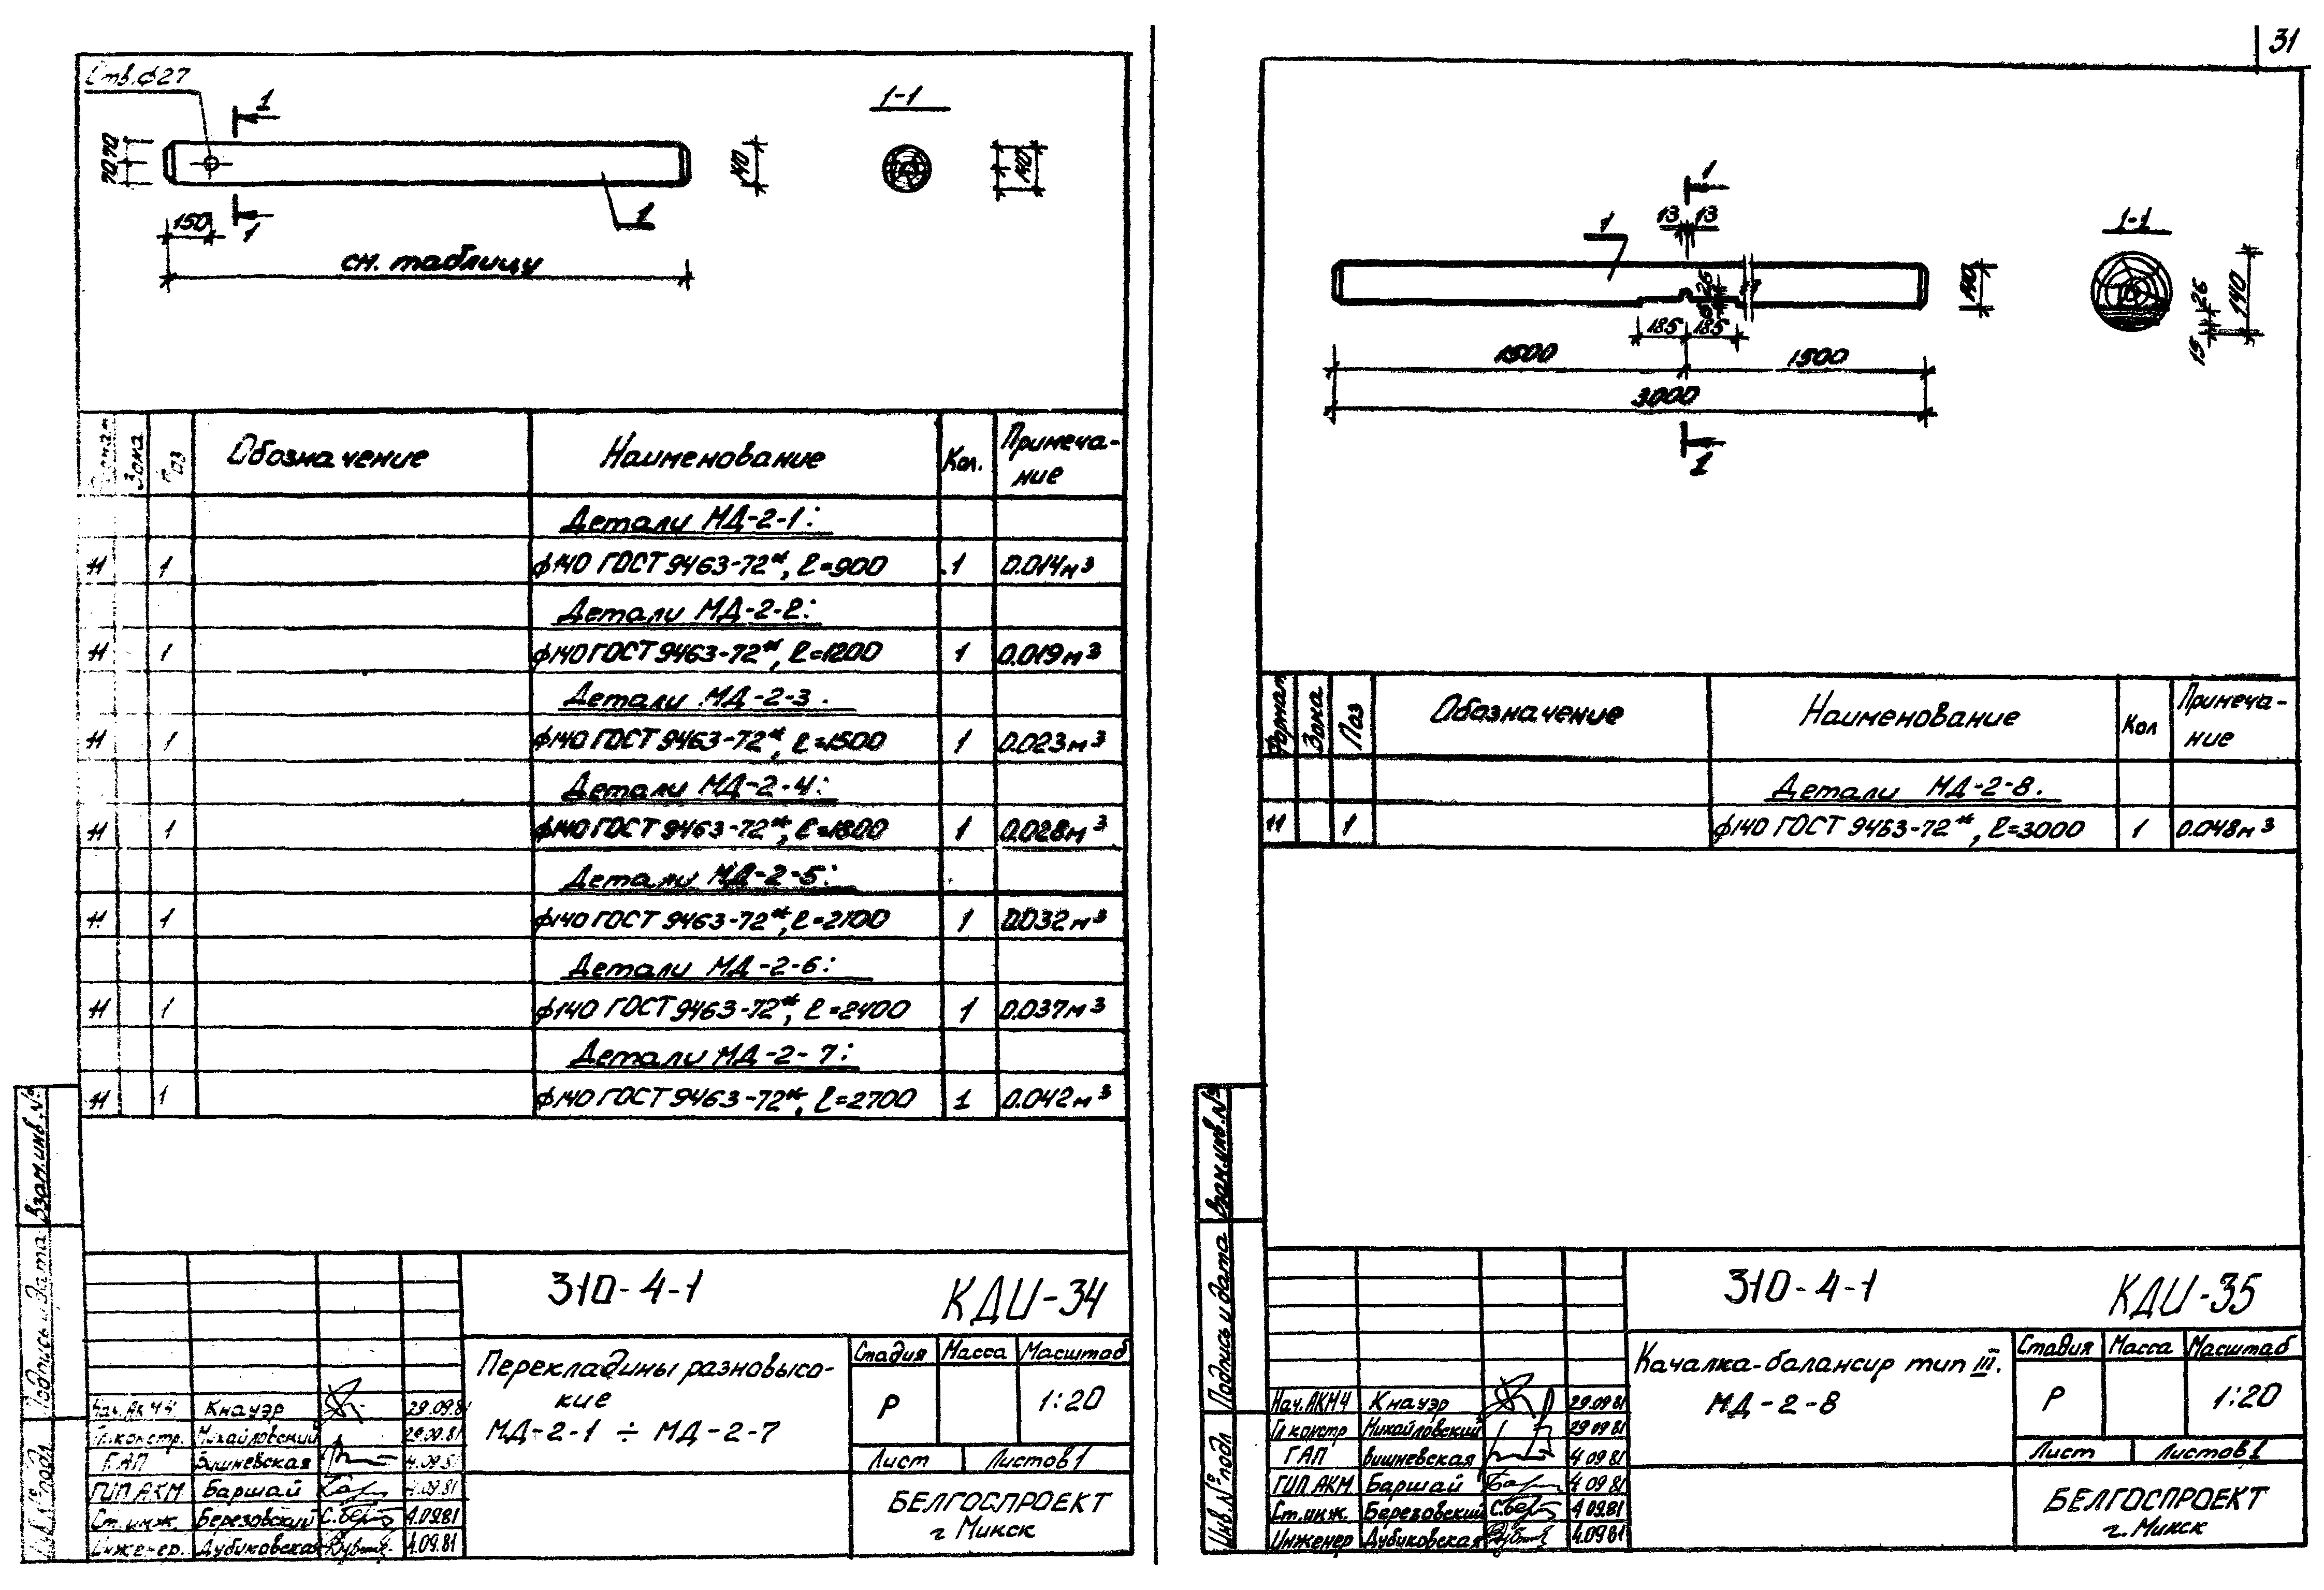 31
Отв.ф27
1
1-1
70 70
140
140
150
1
1
см. таблицу
Зона Поз Обозначение Наименование Кол. Примеча-
ние
Детали МД-2-1:
11 1 ф140 ГОСТ 9463-72*, ℓ=900 1 0.014м³
Детали МД-2-2:
11 1 ф140 ГОСТ 9463-72*, ℓ=1200 1 0.019м³
Детали МД-2-3.
11 1 ф140 ГОСТ 9463-72*, ℓ=1500 1 0.023м³
Детали МД-2-4:
11 1 ф140 ГОСТ 9463-72*, ℓ=1800 1 0.028м³
Детали МД-2-5:
11 1 ф140 ГОСТ 9463-72*, ℓ=2100 1 0.032м³
Детали МД-2-6:
11 1 ф140 ГОСТ 9463-72*, ℓ=2400 1 0.037м³
Детали МД-2-7:
11 1 ф140 ГОСТ 9463-72*, ℓ=2700 1 0.042м³
Взам.инв.№
Подпись и дата
Инв.№подл
310-4-1 КДИ-34
Перекладины разновысо-
кие
МД-2-1 ÷ МД-2-7
Стадия Масса Масштаб
Р 1:20
Лист Листов 1
БЕЛГОСПРОЕКТ
г Минск
Нач.АКМ4 Кнауэр 29.09.81
Гл.констр. Михайловский 29.09.81
ГАП Вишневская 4.09.81
ГИП АКМ Баршай 4.09.81
Ст.инж. Березовский 4.09.81
Инженер. Дубиковская 4.09.81
1
13 13
1
1-1
25
140
26
140
15
185 185
1500 1500
3000
1
Формат Зона Поз Обозначение Наименование Кол Примеча-
ние
Детали МД-2-8.
11 1 ф140 ГОСТ 9463-72*, ℓ=3000 1 0.048м³
Взам.инв.№
Подпись и дата
Инв.№подл
310-4-1 КДИ-35
Качалка-балансир тип III.
МД-2-8
Стадия Масса Масштаб
Р 1:20
Лист Листов 1
БЕЛГОСПРОЕКТ
г. Минск
Нач.АКМ4 Кнауэр 29.09.81
Гл констр Михайловский 29 09 81
ГАП Вишневская 4 09 81
ГИП.АКМ Баршай 4 09 81
Ст.инж. Березовский 4 09.81
Инженер Дубиковская 4.09.81